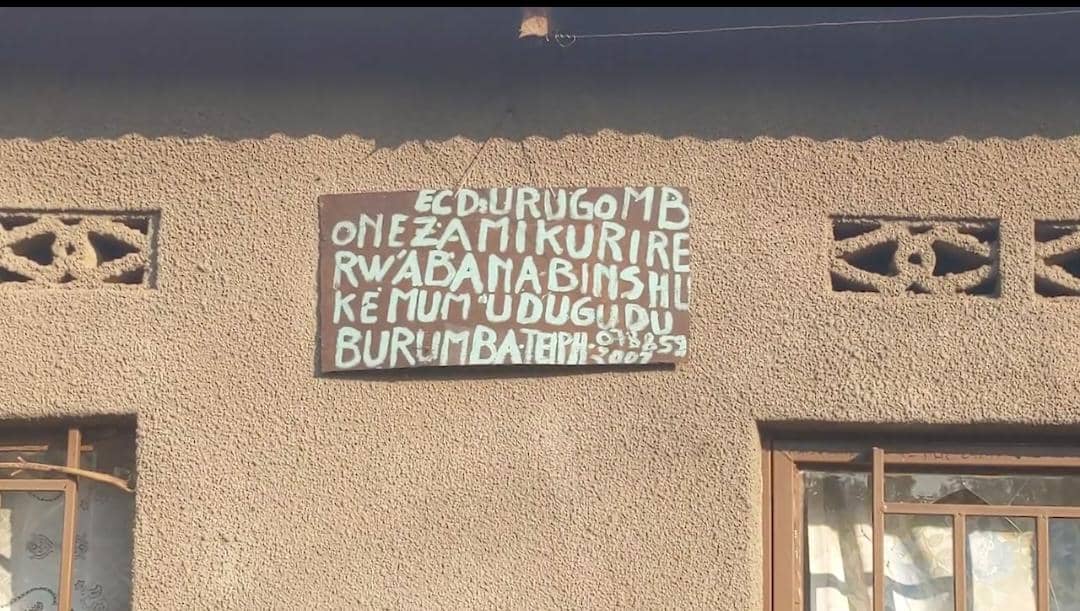 ECD:URUGOMB
ONEZAMIKURIRE
RWABANABINSHU
KE MUM'UDUGUDU
BURUMBA.TEIPH. 078859
2007